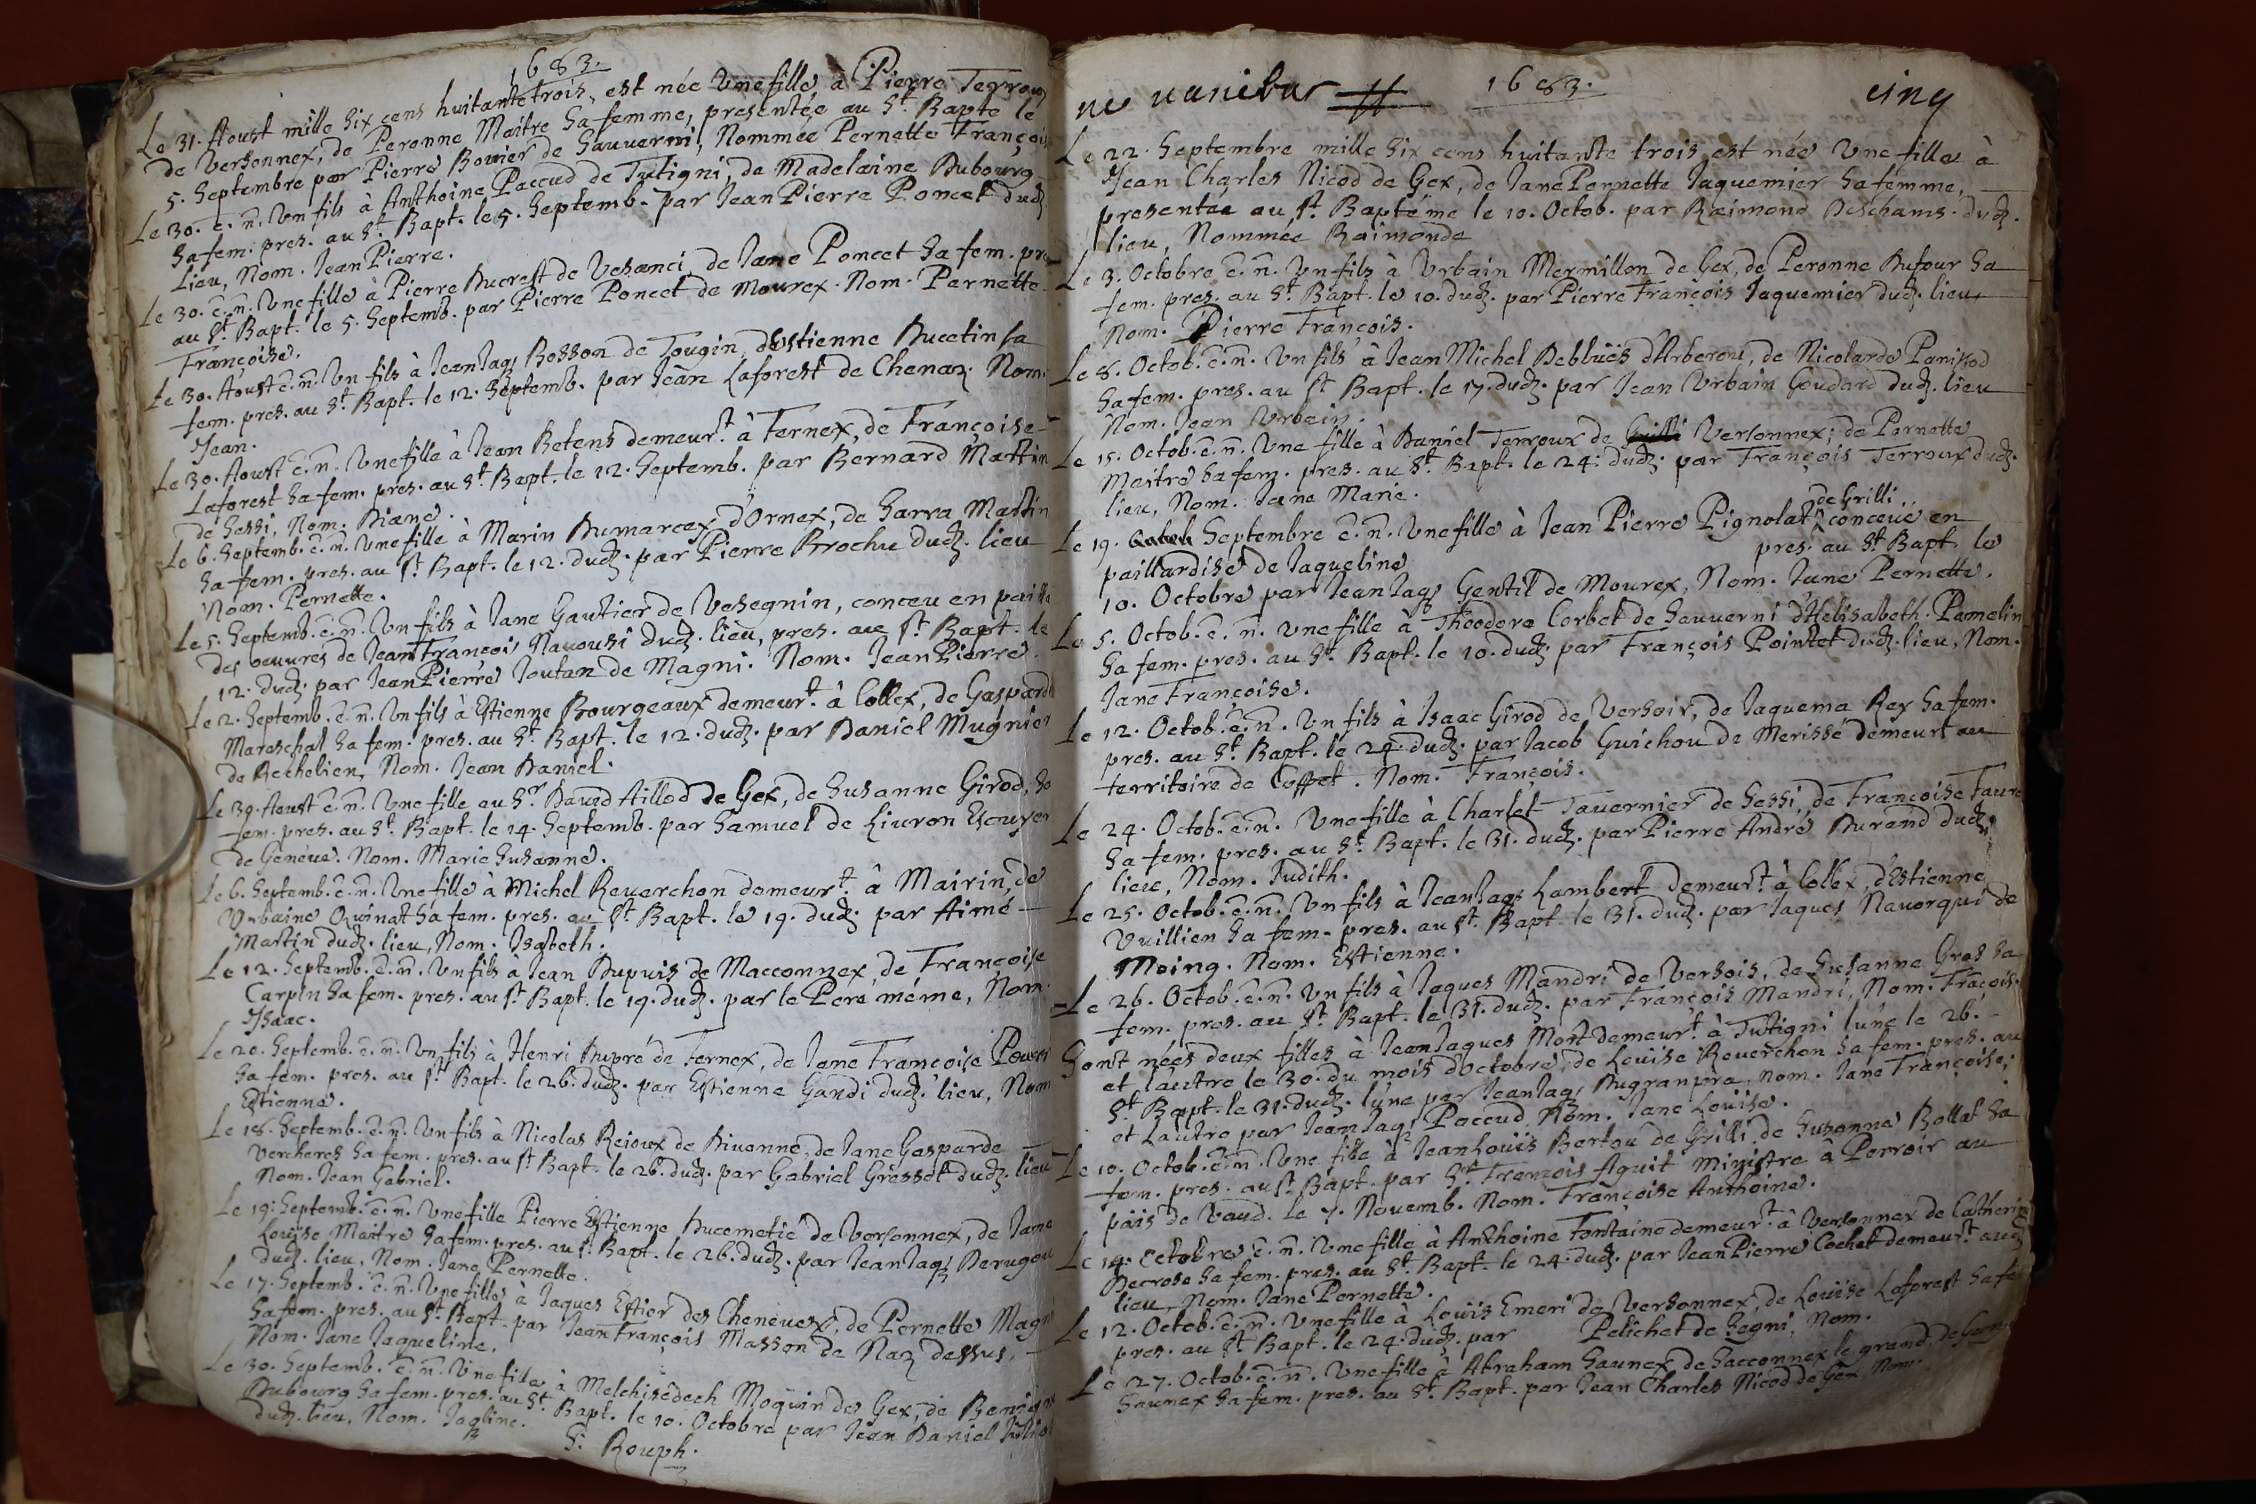 1683.
Le 31. Aoust mille six cens huitante trois, est née une fille, à Pierre Terroux
de Versonnex, de Peronne Maitre sa femme, presentée au St. Bapte le
5. Septembre par Pierre Bouier de Sauverni, Nommée Pernette François
Le 30. e. n. un fils à Anthoine Paccud de Tutigni, de Madelaine Dubourg
sa fem. pres. au St. Bapt. le 5. Septemb. par Jean Pierre Poncet dudz.
lieu, Nom. Jean Pierre.
Le 30. e. n. une fille à Pierre Ducrest de Vesanci, de Jane Poncet sa fem. pre
au St. Bapt. le 5. Septemb. par Pierre Poncet de Mourex. Nom. Pernette
Françoise.
Le 30. Aoust e. n. un fils à Jean Jaqs. Bosson de Tougin, d'Estienne Ducetin sa
fem. pres. au St. Bapt. le 12. Septemb. par Jean Laforest de Chenaz. Nom.
Jean.
Le 30. Aoust e. n. une fille à Jean Retens demeurt. à Fernex, de Françoise
Laforest sa fem. pres. au St. Bapt. le 12. Septemb. par Bernard Martin
de Sessi, Nom. Diane.
Le 6. Septemb. e. n. une fille à Marin Dumarcex d'Ornex, de Sarra Martin
sa fem. pres. au St. Bapt. le 12. dudz. par Pierre Brochu dudz. lieu
Nom. Pernette.
Le 5. Septemb. e. n. un fils à Jane Gautier de Vesegnin, conceu en pailla
des oeuvres de Jean François Navousi dudz. lieu, pres. au St. Bapt. le
12. dudz. par Jean Pierre Joutan de Magni. Nom. Jean Pierre.
Le 2. Septemb. e. n. un fils à Estienne Bourgeaux demeurt. à Collex, de Gasparde
Mareschal sa fem. pres. au St. Bapt. le 12. dudz. par Daniel Mugnier
de Rechelien, Nom. Jean Daniel.
Le 30. Aoust e. n. une fille au Sr. David Aillod de Gex, de Susanne Girod, sa
fem. pres. au St. Bapt. le 14. Septemb. par Samuel de Livron Escuyer
de Geneve. Nom. Marie Susanne.
Le 6. Septemb. e. n. une fille à Michel Reverchon demeurt. à Mairin, de
Urbaine Quinat sa fem. pres. au St. Bapt. le 19. dudz. par Aimé
Martin dudz. lieu, Nom. Isabeth.
Le 12. Septemb. e. n. un fils à Jean Dupuis de Macconnex, de Françoise
Carpin sa fem. pres. au St. Bapt. le 19. dudz. par le Pere méme, Nom.
Isaac.
Le 20. Septemb. e. n. un fils à Henri Dupré de Fernex, de Jane Françoise
sa fem. pres. au St. Bapt. le 26. dudz. par Estienne Gandi dudz. lieu, Nom
Estienne.
Le 18. Septemb. e. n. un fils à Nicolas Rejoux de Divonne, de Jane Gasparde
Vercheres sa fem. pres. au St. Bapt. le 26. dudz. par Gabriel Grosset dudz. lieu
Nom. Jean Gabriel.
Le 19. Septemb. e. n. une fille Pierre Estienne Ducemetié de Versonnex, de Jane
Louise Maitre sa fem. pres. au St. Bapt. le 26. dudz. par Jean Jaqs.
dudz. lieu, Nom. Jane Pernette.
Le 17. Septemb. e. n. une fille à Jaques Estier des Chenevex, de Pernette Magn
sa fem. pres. au St. Bapt. par Jean François Masson de Naz dessus,
Nom. Jane Jaqueline.
Le 30. Septemb. e. n. une fille à Melchisedech Moquin de Gex, de
Dubourg sa fem. pres. au St. Bapt. le 10. Octobre par Jean Daniel
dudz. lieu, Nom. Jaqline.
S. Rouph.
ne varietur 1683. cinq
Le 22. Septembre mille six cens huitante trois est née une fille à
Jean Charles Nicod de Gex, de Jane Pernette Jaquemier sa femme,
presentée au St. Baptéme le 10. Octob. par Raimond Deschams dudz.
lieu, Nommée Raimonde
Le 3. Octobre e. n. un fils à Urbain Mermillon de Gex, de Peronne Dufour sa
fem. pres. au St. Bapt. le 10. dudz. par Pierre François Jaquemier dudz. lieu
Nom. Pierre François.
Le 8. Octob. e. n. un fils à Jean Michel Debluës d'Arberou, de Nicolarde Panissod
sa fem. pres. au St. Bapt. le 17. dudz. par Jean Urbain Goudard dudz. lieu
Nom. Jean Urbain.
Le 15. Octob. e. n. une fille à Daniel Terroux de Grilli Versonnex, de Pernette
Maitre sa fem. pres. au St. Bapt. le 24. dudz. par François Terroux dudz.
lieu, Nom. Jane Marie.
Le 19. Septembre e. n. une fille à Jean Pierre Pignolat de Grilli conceüe en
paillardise de Jaqueline pres. au St. Bapt. le
10. Octobre par Jean Jaqs. Gentil de Mourex, Nom. Jane Pernette.
Le 5. Octob. e. n. une fille à Theodore Corbet de Sauverni d'Helisabeth Pamelin
sa fem. pres. au St. Bapt. le 10. dudz. par François Pointet dudz. lieu, Nom.
Jane Françoise.
Le 12. Octob. e. n. un fils à Isaac Girod de Versoix, de Jaquema Rey sa fem.
pres. au St. Bapt. le 24. dudz. par Jacob Guichou de Merissé demeurt au
territoire de Coppet. Nom. François.
Le 24. Octob. e. n. une fille à Charlet Tavernier de Sessi, de Françoise Faure
sa fem. pres. au St. Bapt. le 31. dudz. par Pierre André Durand dudz.
lieu, Nom. Judith.
Le 25. Octob. e. n. un fils à Jean Jaqs. Lambert demeurt. à Collex, d'Estienne
Vuillien sa fem. pres. au St. Bapt. le 31. dudz. par Jaques Navorqui de
Moing. Nom. Estienne.
Le 26. Octob. e. n. un fils à Jaques Mandri de Versois, de Susanne Gros sa
fem. pres. au St. Bapt. le 31. dudz. par François Mandri, Nom. Fraçois.
Sont nées deux filles à Jean Jaques Mort demeurt. à Tutigni l'une le 26.
et l'autre le 30. du mois d'octobre, de Louise Reverchon sa fem. pres. au
St. Bapt. le 31. dudz. l'une par Jean Jaqs. Dugranpra, nom. Jane Françoise;
et l'autre par Jean Jaqs. Paccud, Nom. Jane Louise.
Le 10. Octob. e. n. une fille à Jean Louïs Bertou de Grilli, de Susanne Bollat sa
fem. pres. au St. Bapt. par Sr. François Aguit Ministre à Perroir au
païs de Vaud. le 7. Novemb. Nom. Françoise Anthoine.
Le 14. Octobre e. n. une fille à Anthoine Fontaine demeurt. à Versonnex de Catherine
Decrose sa fem. pres. au St. Bapt. le 24. dudz. par Jean Pierre Cochet demeurt. audz.
lieu, Nom. Jane Pernette.
Le 12. Octob. e. n. une fille à Louïs Emeri de Versonnex, de Louïse Laforest sa fe
pres. au St. Bapt. le 24. dudz. par Pelichet de Segni, Nom.
Le 27. Octob. e. n. une fille à Abraham Saunex de Sacconnex le grand, de
Saunex sa fem. pres. au St. Bapt. par Jean Charles Nicod de Gex. Nom.